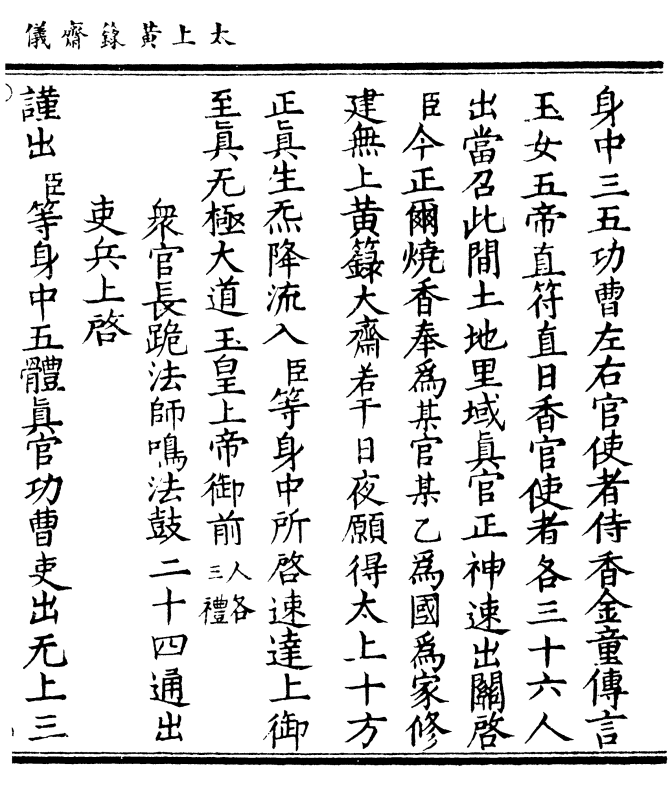 太上黃籙齋儀
身中三五功曹左右官使者侍香金童傳言
玉女五帝直符直日香官使者各三十六人
出當召此間土地里域眞官正神速出關啓
臣今正爾燒香奉爲某官某乙爲國爲家修
建無上黃籙大齋若干日夜願得太上十方
正眞生炁降流入臣等身中所啓速達上御
至眞无極大道玉皇上帝御前人各三禮
衆官長跪法師鳴法鼓二十四通出
吏兵上啓
謹出臣等身中五體眞官功曹吏出无上三